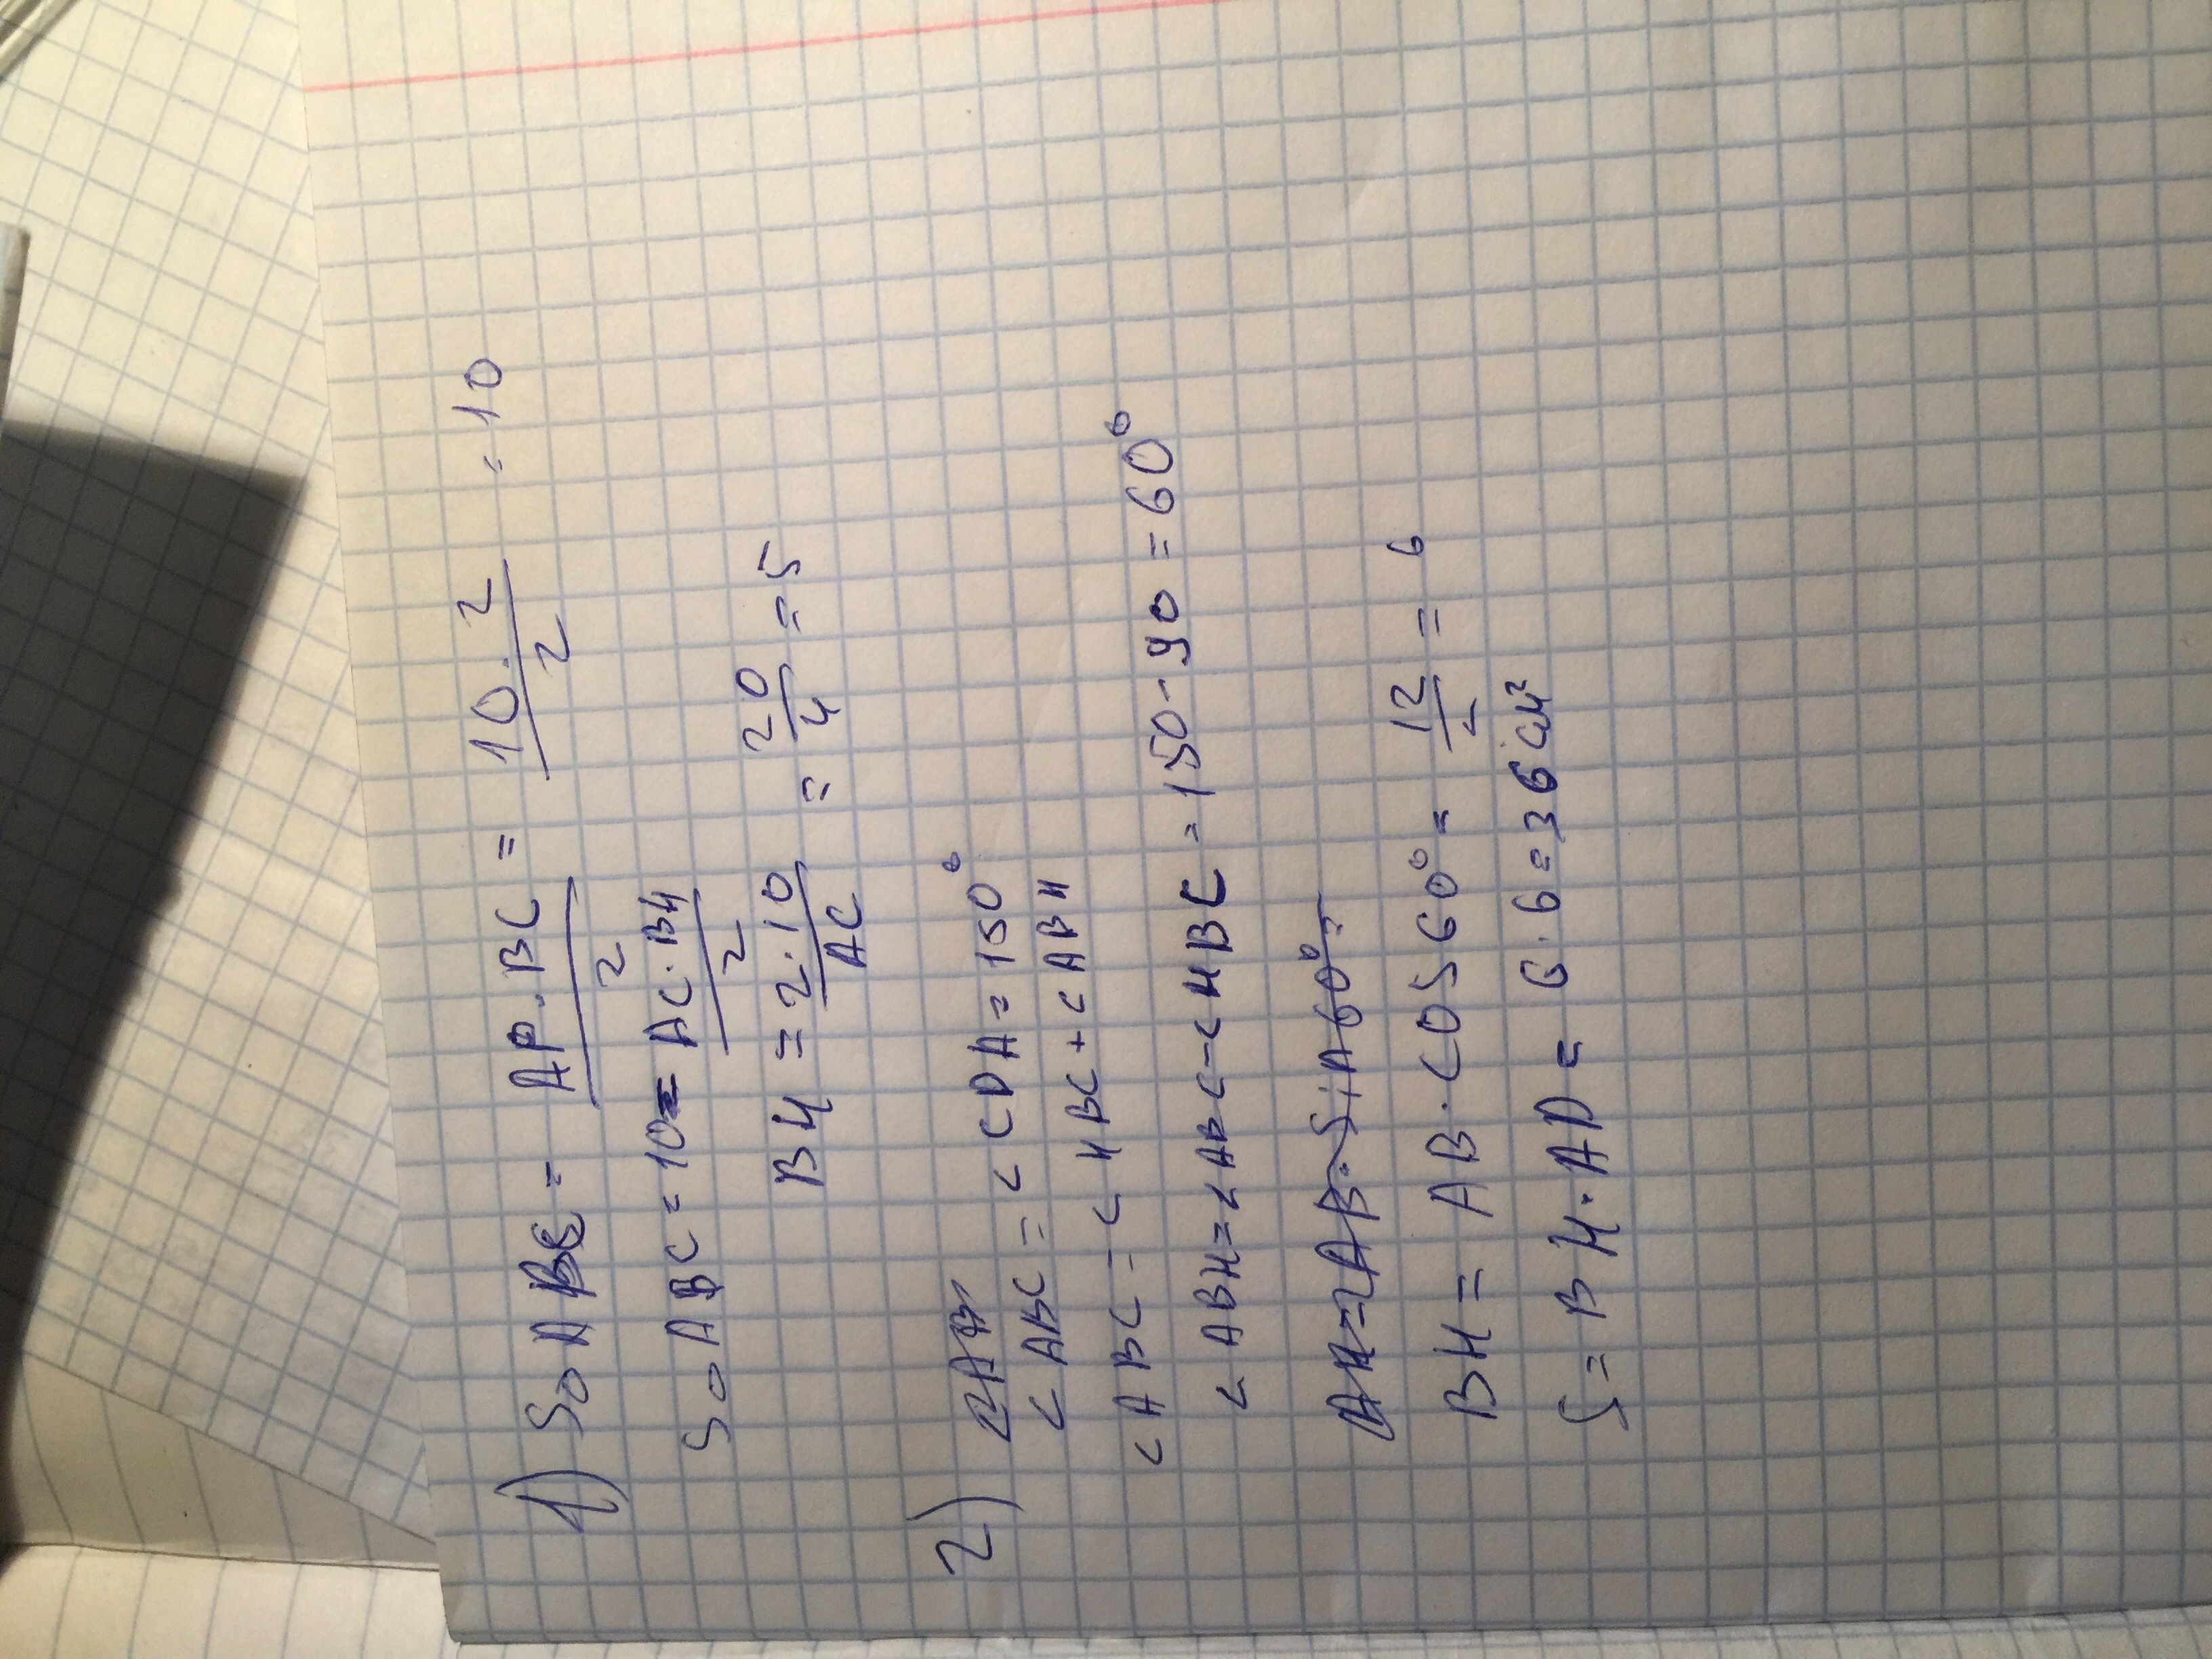 1) S△ABC = AP·BC/2 = 10·2/2 = 10
S△ABC = 10 = AC·BH/2
BH = 2·10/AC = 20/4 = 5
2)
<ABC = <CDA = 150°
<ABC = <HBC + <ABH
<ABH = <ABC - <HBC = 150 - 90 = 60°
AH = AB·Sin60° =
BH = AB·COS60° = 12/2 = 6
S = BH·AD = 6·6 = 36 см²